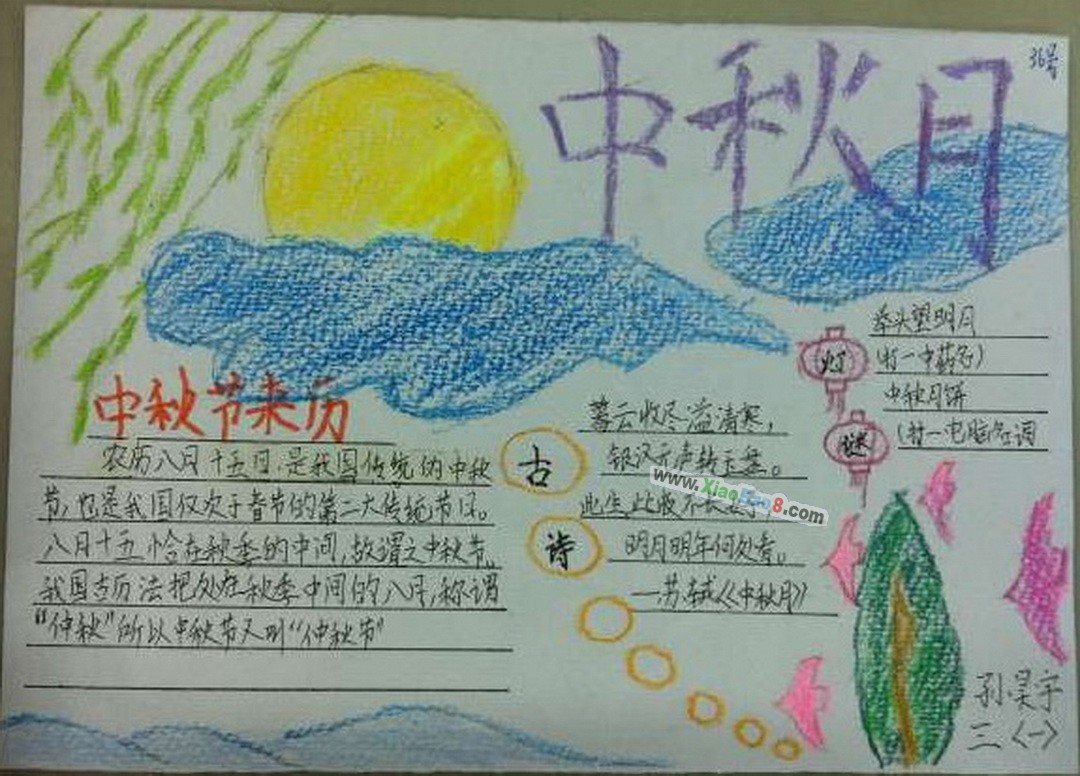 中秋月
36号
中秋节来历
农历八月十五日,是我国传统的中秋
节,也是我国仅次于春节的第二大传统节日。
八月十五恰在秋季的中间,故谓之中秋节。
我国古历法把处在秋季中间的八月,称谓
“仲秋”所以中秋节又叫“仲秋节”
古诗
暮云收尽溢清寒,
银汉无声转玉盘。
此生此夜不长好,
明月明年何处看。
—苏轼《中秋月》
灯谜
举头望明月
(打一中药名)
中秋月饼
(打一电脑名词
www.XiaoBao8.com
孙昊宇
三〈一〉